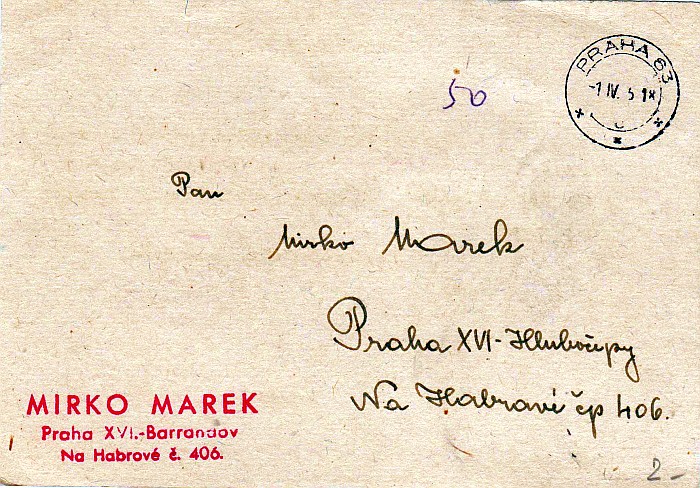 PRAHA 63
-1 IV. 51*
50
Pan
Mirko Marek
Praha XVI-Hlubočepy
Na Habravé čp 406.
MIRKO MAREK
Praha XVI.-Barrandov
Na Habrové č. 406.
2-